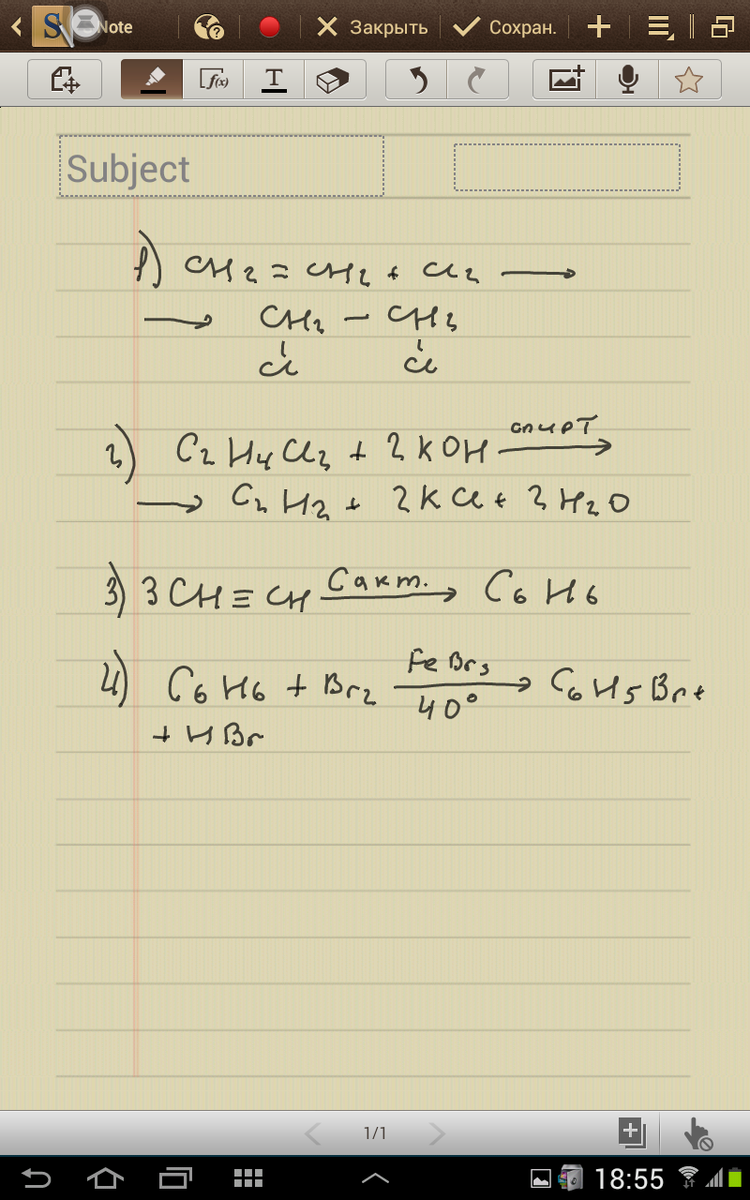 S Note
Закрыть
Сохран.
f(x)
T
Subject
1) CH2 = CH2 + Cl2 ⟶
⟶ CH2 – CH2
Cl Cl
2) C2H4Cl2 + 2KOH спирт ⟶
⟶ C2H2 + 2KCl + 2H2O
3) 3CH≡CH C акт. ⟶ C6H6
4) C6H6 + Br2 FeBr3 ⟶ 40° C6H5Br +
+ HBr
1/1
18:55